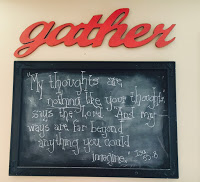 gather
"My thoughts are
nothing like your thoughts,"
says the Lord. "And my
ways are far beyond
anything you could
imagine."
Isa. 55:8